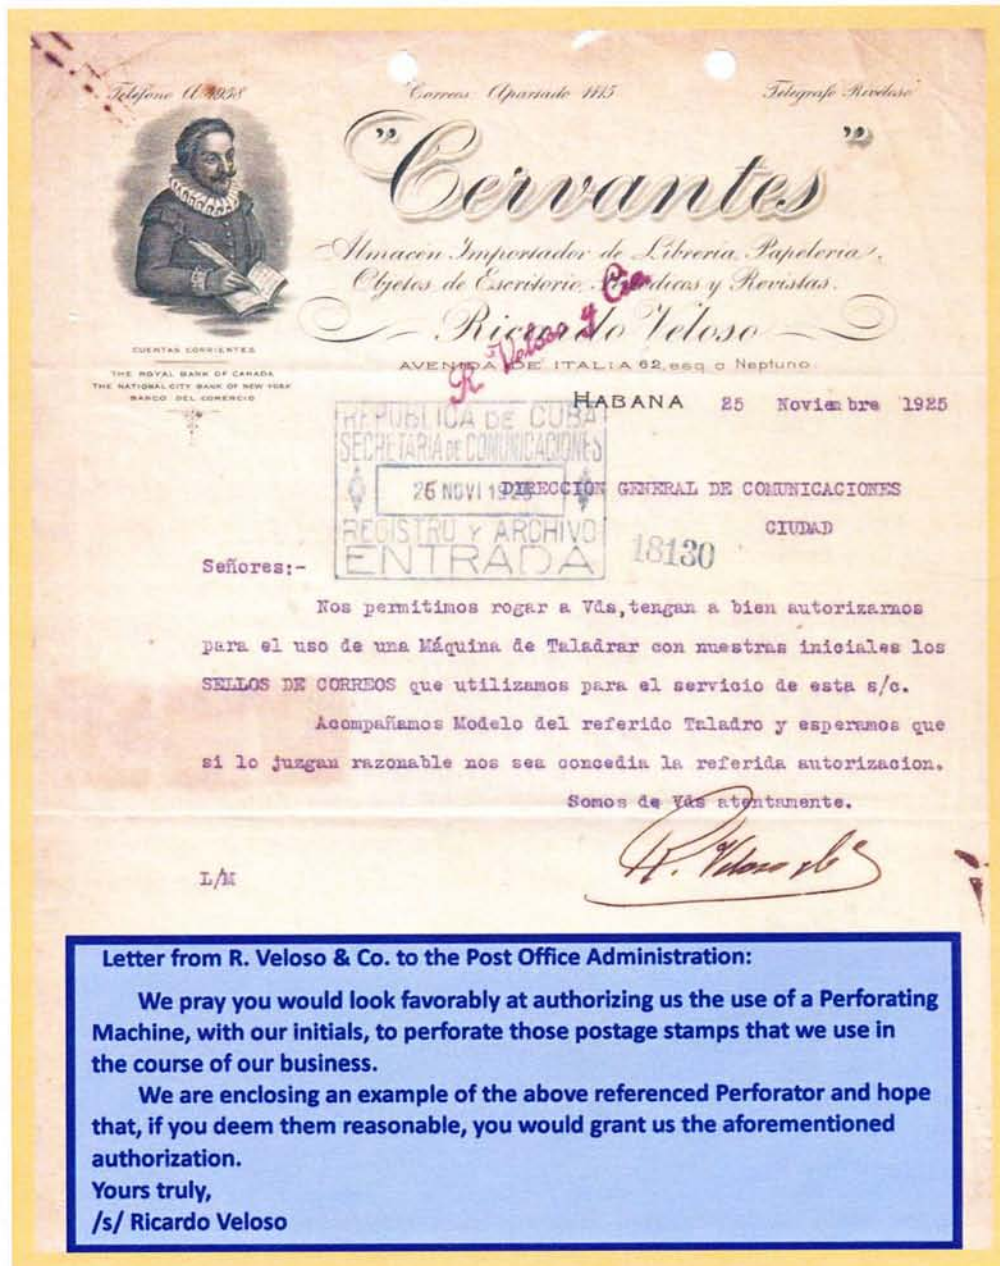 Teléfono A 4958
Correos: Apartado 1115
Telegrafo Riveloso
"Cervantes"
Almacén Importador de Librería, Papelería,
Objetos de Escritorio, Periódicos y Revistas.
R. Veloso y Cia.
Ricardo Veloso
AVENIDA DE ITALIA 62, esq. a Neptuno.
CUENTAS CORRIENTES
THE ROYAL BANK OF CANADA
THE NATIONAL CITY BANK OF NEW YORK
BANCO DEL COMERCIO
HABANA 25 Noviembre 1925
REPUBLICA DE CUBA
SECRETARIA DE COMUNICACIONES
26 NOVI 1925
REGISTRO Y ARCHIVO
ENTRADA
18130
DIRECCION GENERAL DE COMUNICACIONES
CIUDAD
Señores:-
Nos permitimos rogar a Vds, tengan a bien autorizarnos
para el uso de una Máquina de Taladrar con nuestras iniciales los
SELLOS DE CORREOS que utilizamos para el servicio de esta s/c.
Acompañamos Modelo del referido Taladro y esperamos que
si lo juzgan razonable nos sea concedia la referida autorizacion.
Somos de Vds atentamente.
R. Veloso y Cª
L/M
Letter from R. Veloso & Co. to the Post Office Administration:
We pray you would look favorably at authorizing us the use of a Perforating
Machine, with our initials, to perforate those postage stamps that we use in
the course of our business.
We are enclosing an example of the above referenced Perforator and hope
that, if you deem them reasonable, you would grant us the aforementioned
authorization.
Yours truly,
/s/ Ricardo Veloso